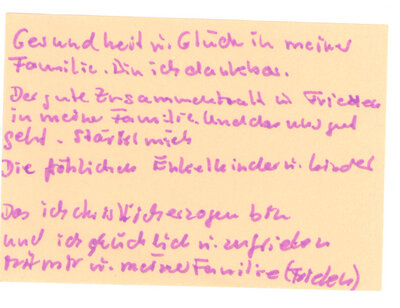 Gesundheit u. Glück in meiner
Familie. Bin ich dankbar.
Der gute Zusammenhalt u. Frieden
in meiner Familie. Und das uns gut
geht. Stärkt mich
Die fröhlichen Enkelkinder u. Kinder
Das ich christlich erzogen bin
und ich glücklich u. zufrieden
mit mir u. meiner Familie (Frieden)